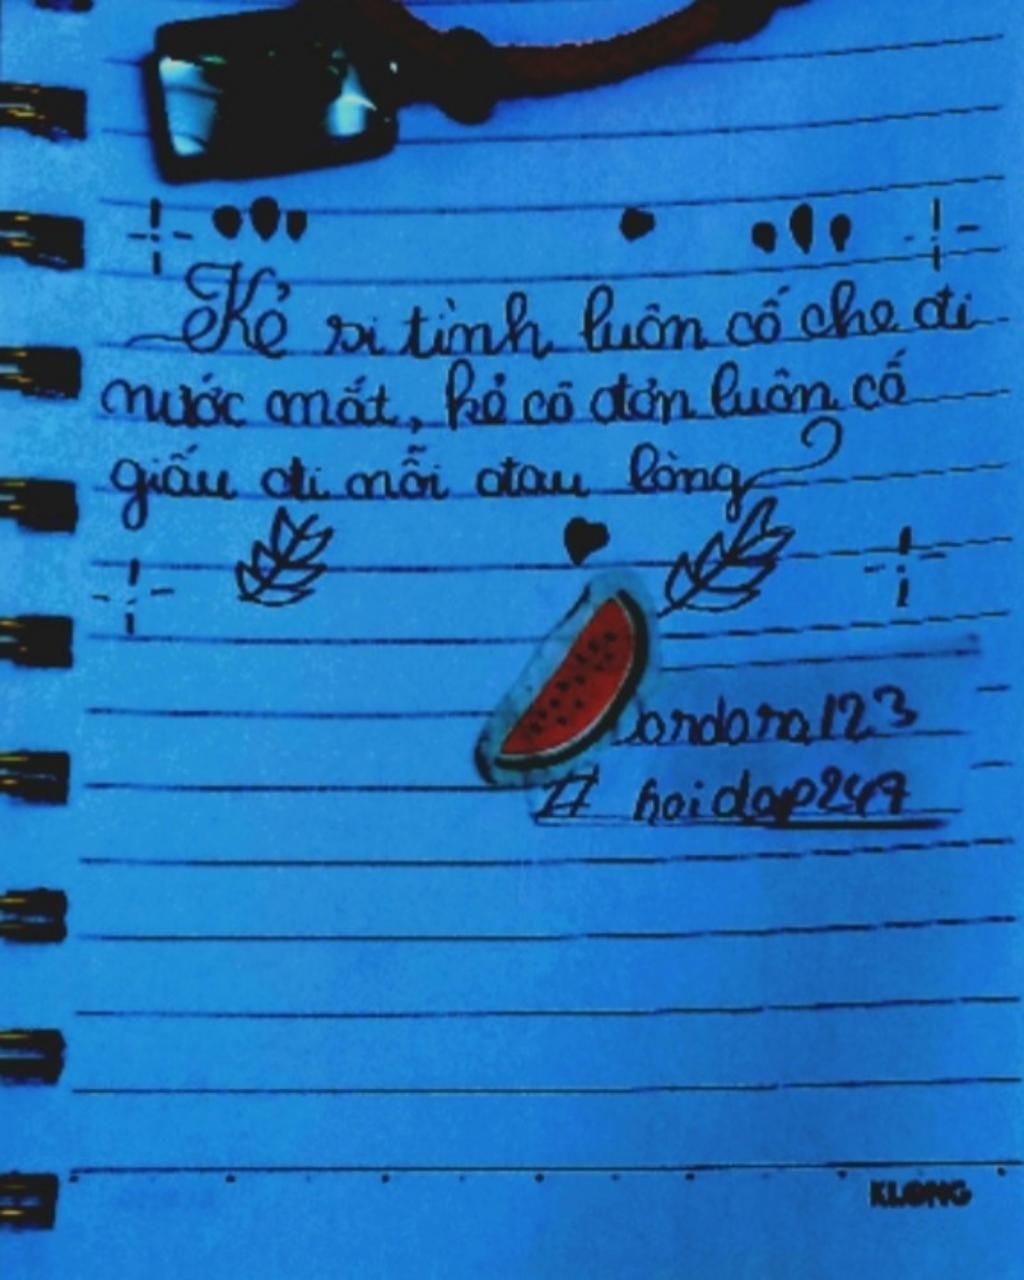 Kẻ si tình luôn cố che đi
nước mắt, kẻ cô đơn luôn cố
giấu đi nỗi đau lòng
# hoidap247
KLONG